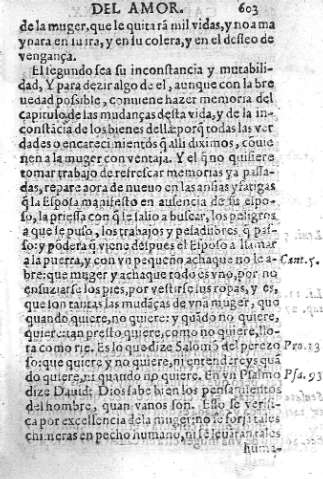 DEL AMOR. 603
de la muger, que le quitarã mil vidas, y no a ma
ynara en su ira, y en su colera, y en el desseo de
vengança.
El segundo sea su inconstancia y mutabili-
dad, Y para dezir algo de el, aunque con la bre
uedad possible, conuiene hazer memoria del
capitulo, de las mudanças desta vida, y de la in-
constãcia de los bienes della: porq̃ todas las ver
dades o encarecimientos q̃ alli diximos, cõuie
nen a la muger con ventaja. Y el q̃ no quisiere
tomar trabajo de refrescar memorias ya passa-
das, repare aora de nueuo en las ansias y fatigas
q̃ la Esposa manifesto en ausencia de su espo-
so, la priessa con q̃ le salio a buscar, los peligros
a que se puso, los trabajos y pesadũbres q̃ pas-
so: y põderа q̃ viene despues el Esposo a llamar
a la puerta, y con vn pequeño achaque no le a- Cant. 5.
bre: que muger y achaque todo es vno, por no
ensuziarse los pies, por vestirse sus ropas, y es,
que son tantas las mudãças de vna muger, que
quando quiere, no quiere: y quãdo no quiere,
quiere: tan presto quiere, como no quiere, llo-
ra como rie. Es lo que dize Salomõ del perezo Pro. 13
so: que quiere y no quiere, ni entendereys quã
do quiere, ni quando no quiere. En vn Psalmo Psa. 93
dize Dauid: Dios sabe bien los pensamientos
del hombre, quan vanos son. Esto se verifi-
ca por excellencia de la muger: no se forjã tales
chimeras en pecho humano, ni se leuãtan tales
huma-